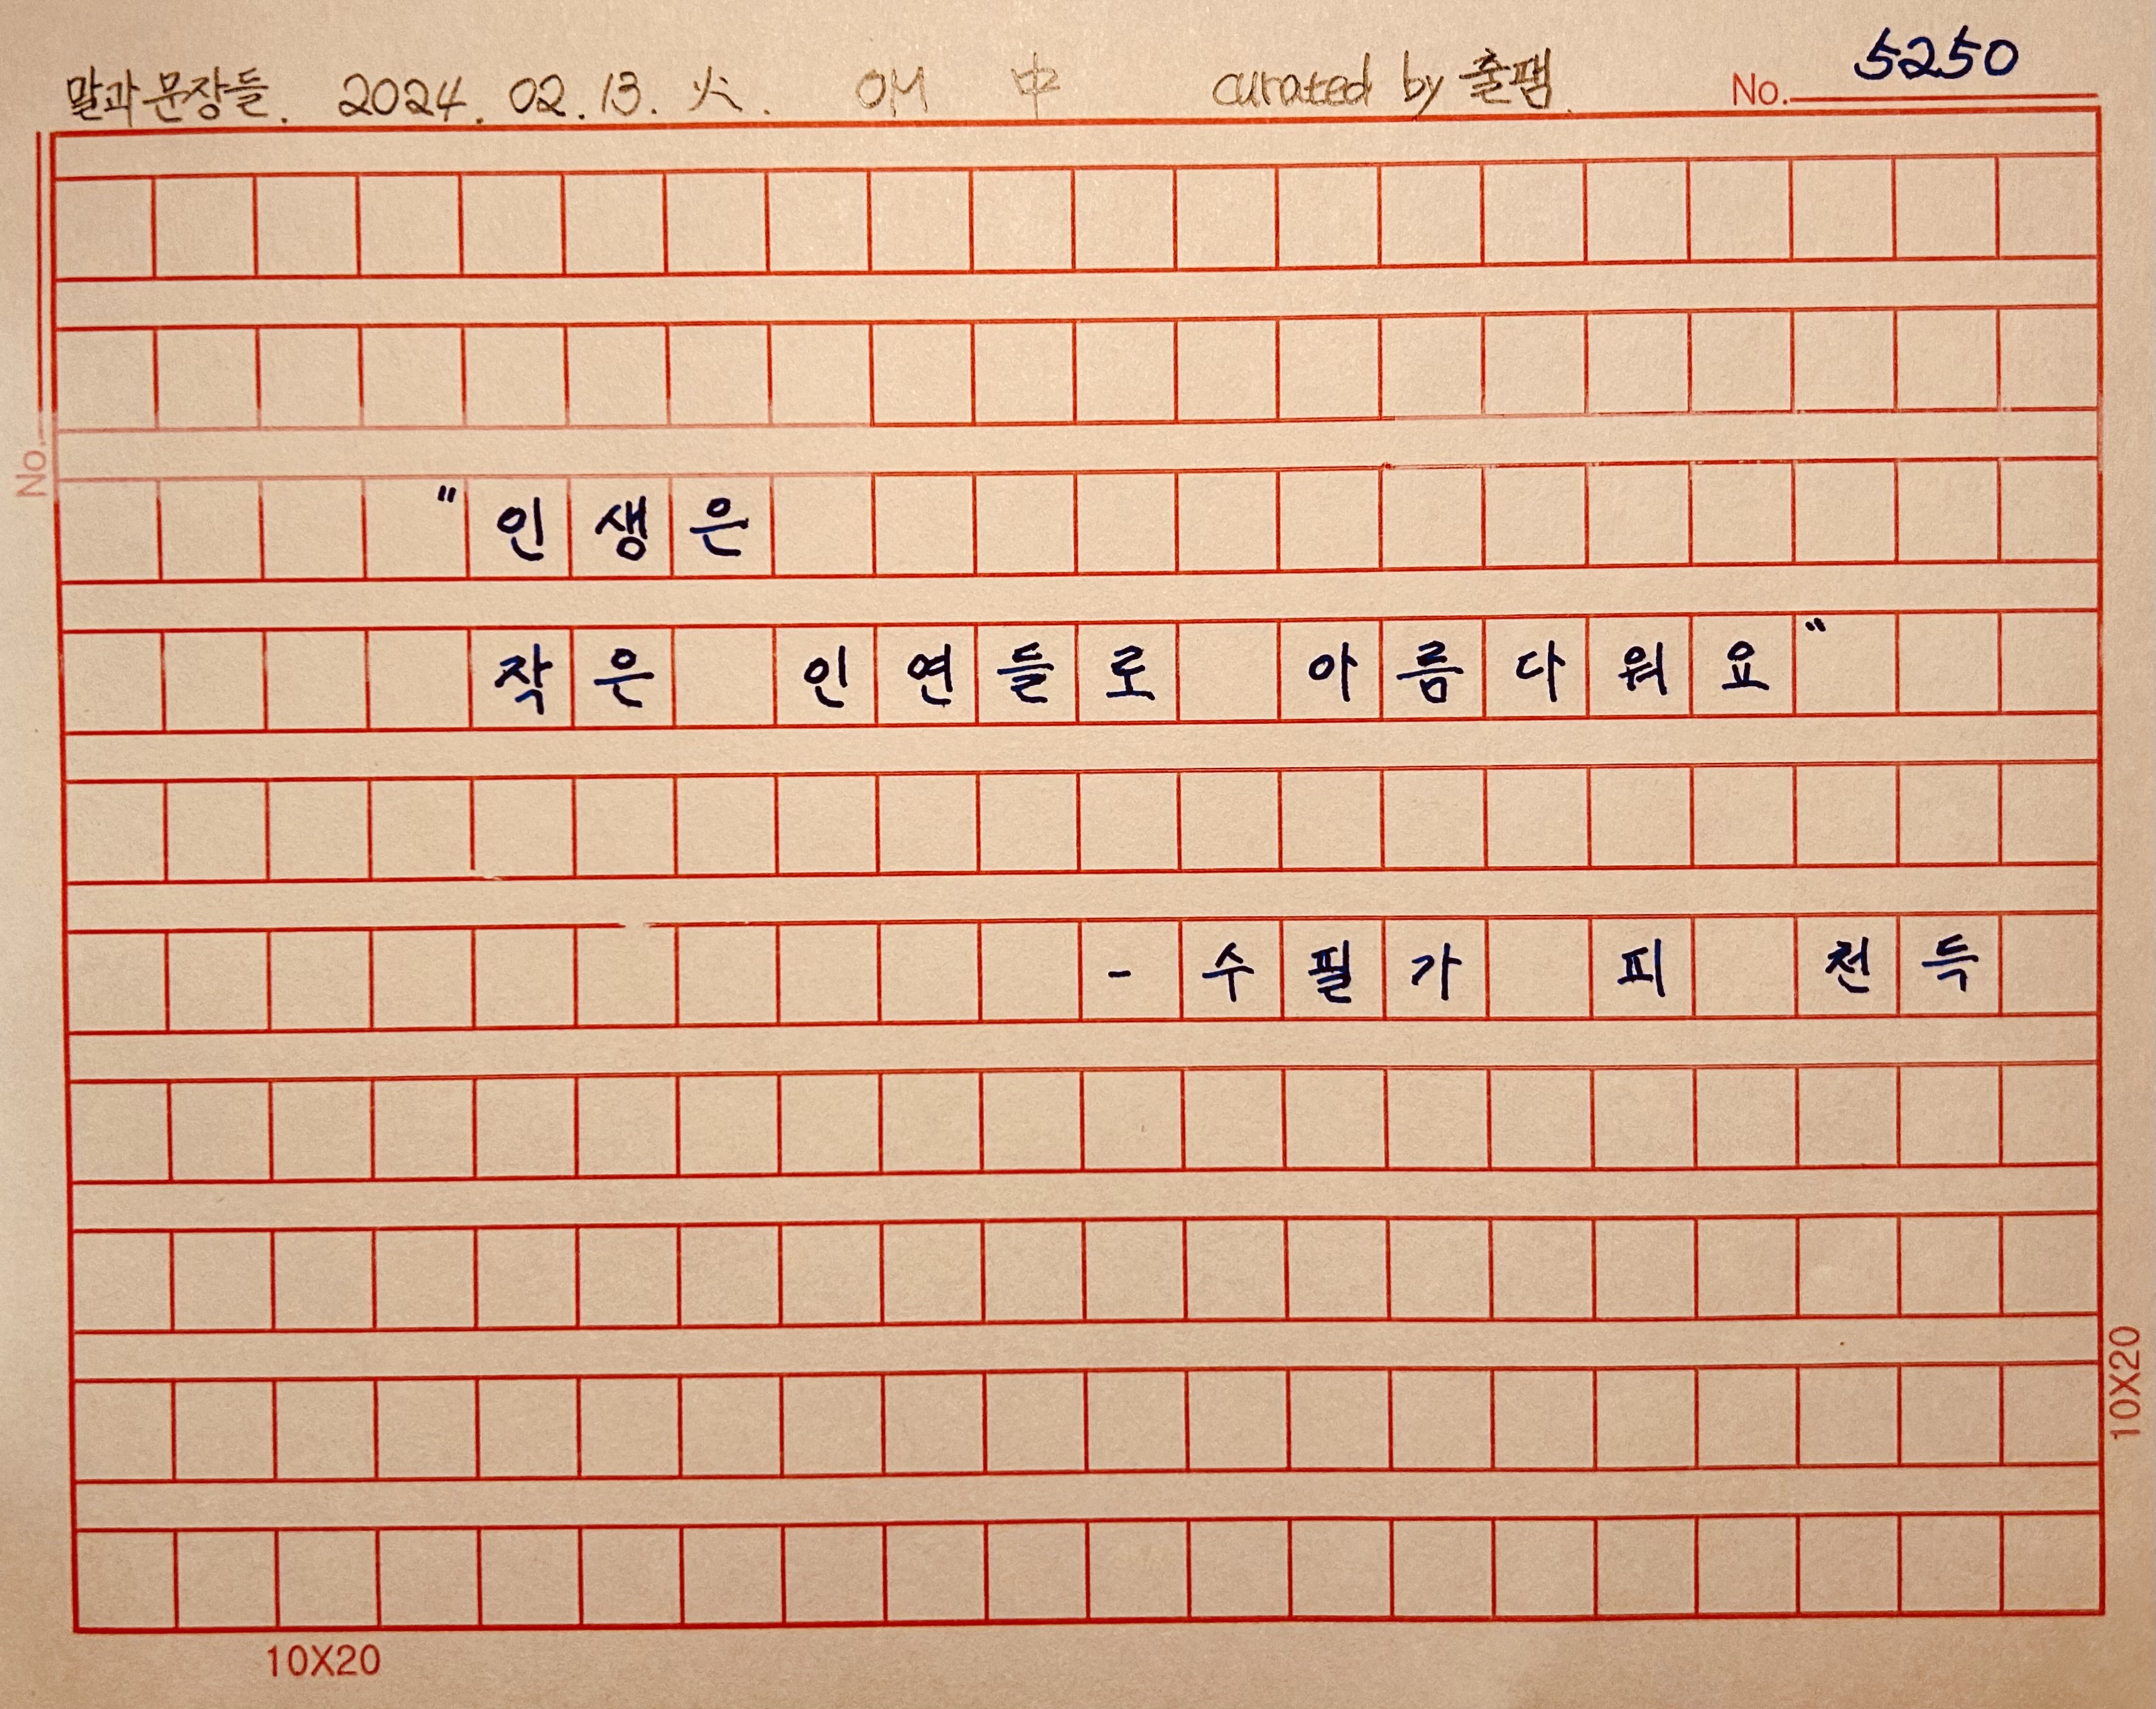 말과 문장들. 2024. 02. 13. 火. OM 中 curated by 줄팸. No. 5250
No.
"인생은
작은 인연들로 아름다워요"
- 수필가 피 천득
10X20
10X20